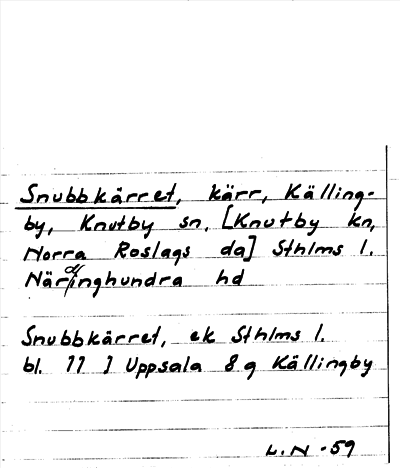 Snubbkärret, kärr, Källing-
by, Knutby sn, [Knutby kn,
Norra Roslags da] Sthlms l.
Närdinghundra hd
Snubbkärret, ek Sthlms l.
bl. 11 I Uppsala 8 g Källingby
L.N -59